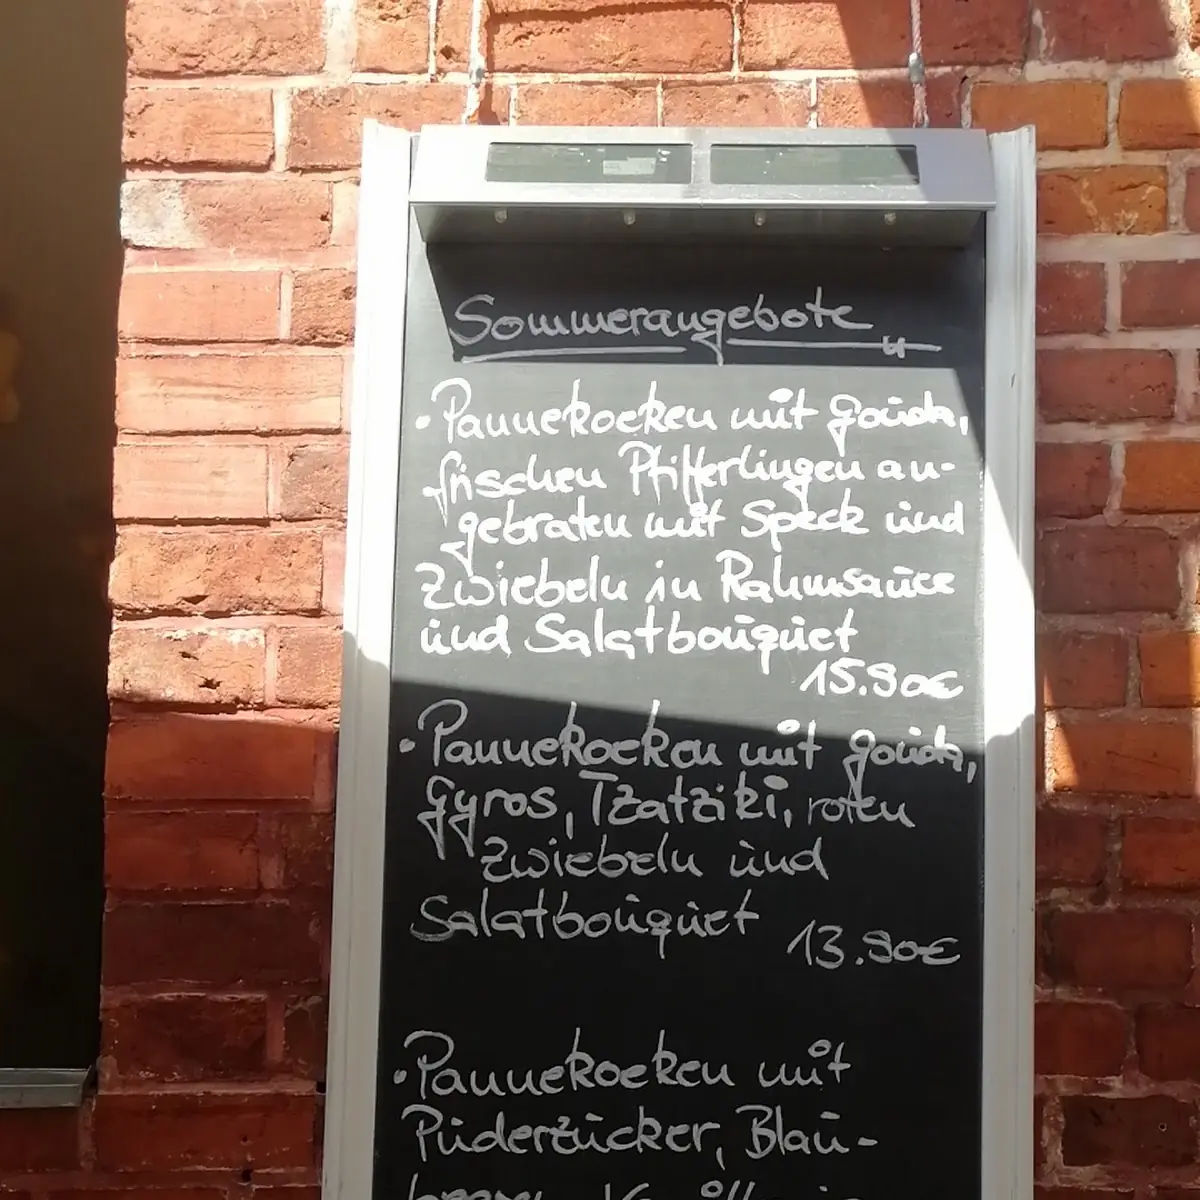 Sommerangebote
• Pannekoeken mit Gouda,
frischen Pfifferlingen an-
gebraten mit Speck und
Zwiebeln in Rahmsauce
und Salatbouquet
15.90€
• Pannekoeken mit Gouda,
Gyros, Tzatziki, roten
Zwiebeln und
Salatbouquet
13.90€
• Pannekoeken mit
Puderzucker, Blau-